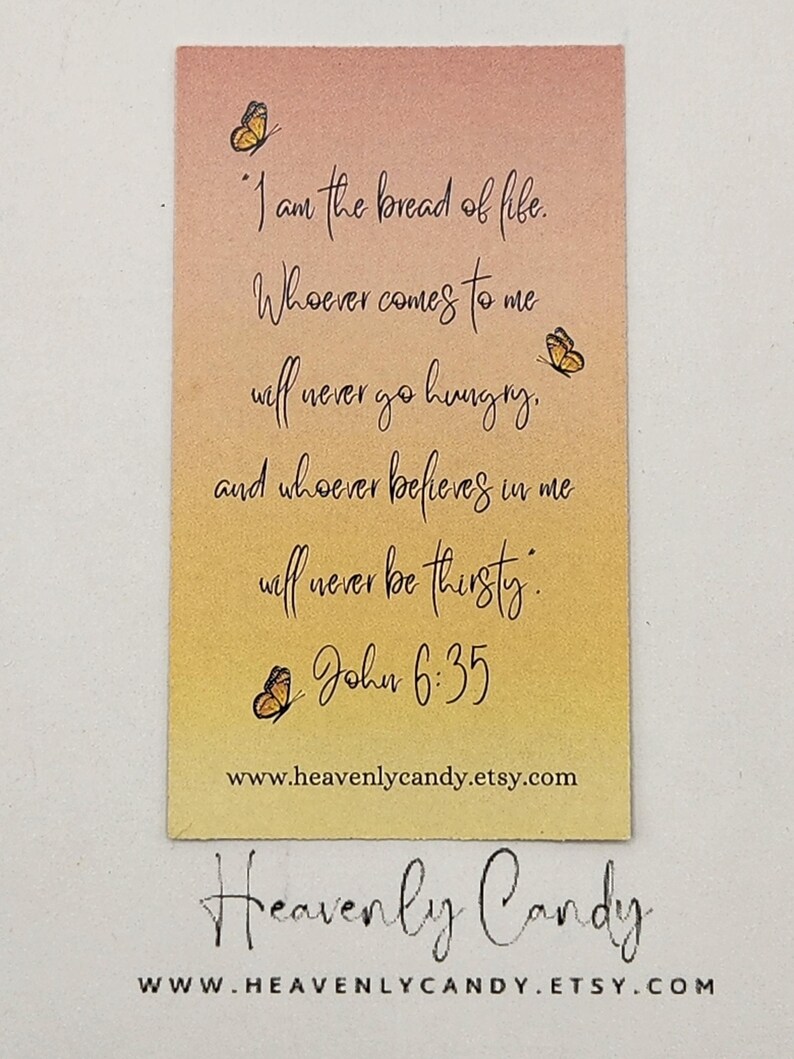 "I am the bread of life.
Whoever comes to me
will never go hungry,
and whoever believes in me
will never be thirsty".
John 6:35
www.heavenlycandy.etsy.com
Heavenly Candy
WWW.HEAVENLYCANDY.ETSY.COM